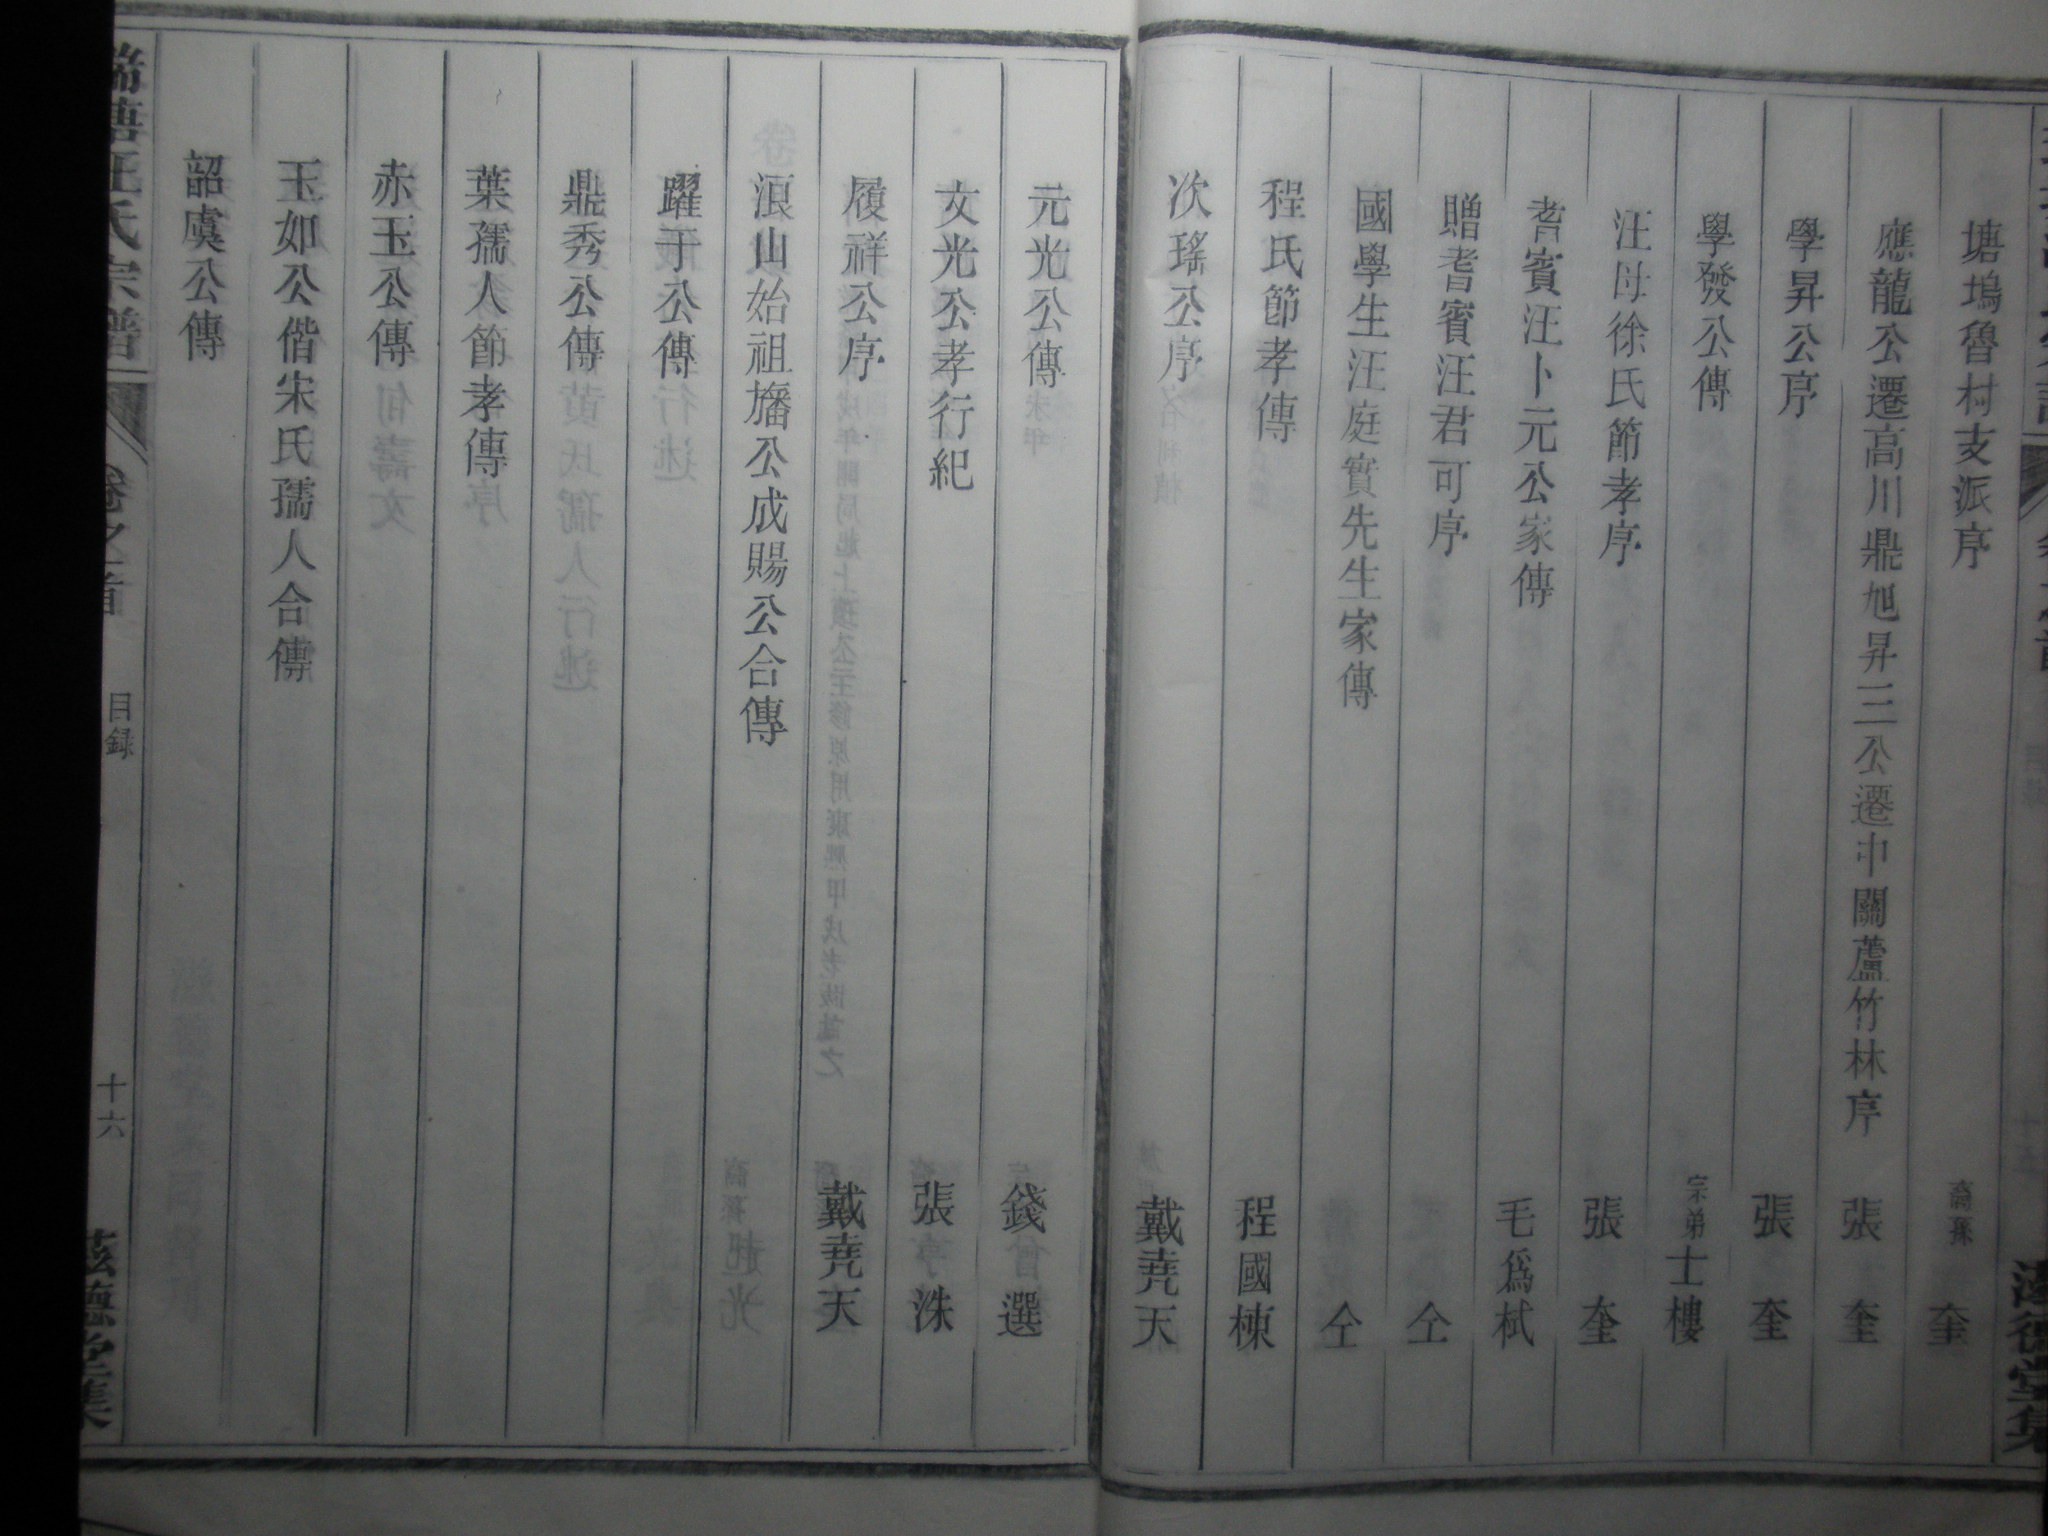 塘塢魯村支派序 裔孫 奎
應龍公遷高川鼎旭昇三公遷中關蘆竹林序 張 奎
學昇公序 張 奎
學發公傳 宗弟士樓
汪母徐氏節孝序 張 奎
耆賓汪卜元公家傳 毛爲栻
贈耆賓汪君可序 仝
國學生汪庭實先生家傳 仝
程氏節孝傳 程國棟
次瑤公序 戴堯天
元光公傳 錢 選
文光公孝行紀 張 洙
履祥公序 戴堯天
浪山始祖旛公成賜公合傳
躍于公傳
鼎秀公傳
葉孺人節孝傳
赤玉公傳
玉如公偕宋氏孺人合傳
韶虞公傳
汪氏宗譜 卷之首 目録 十六 德堂集